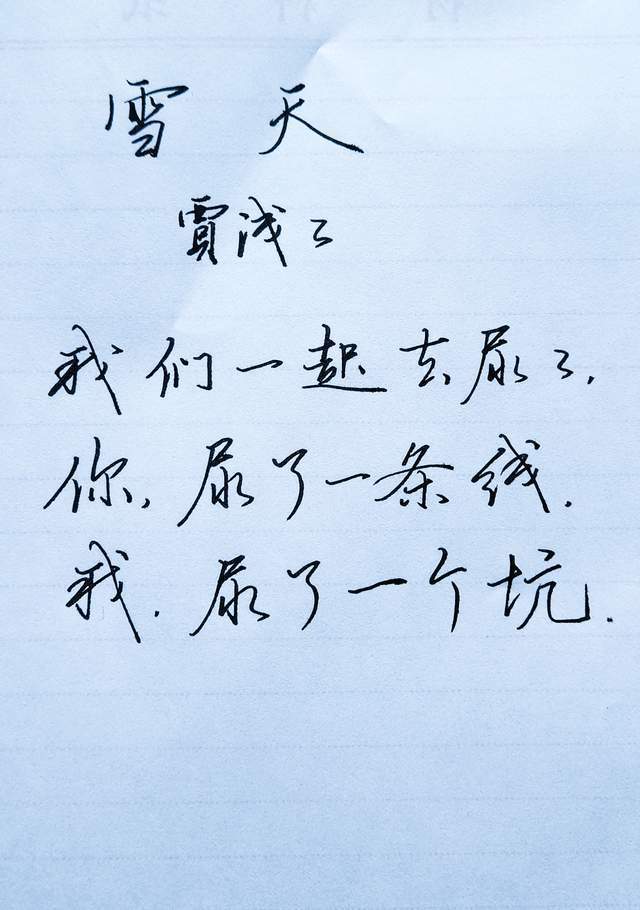 雪天
賈浅々
我们一起去尿々，
你，尿了一条线．
我．尿了一个坑．